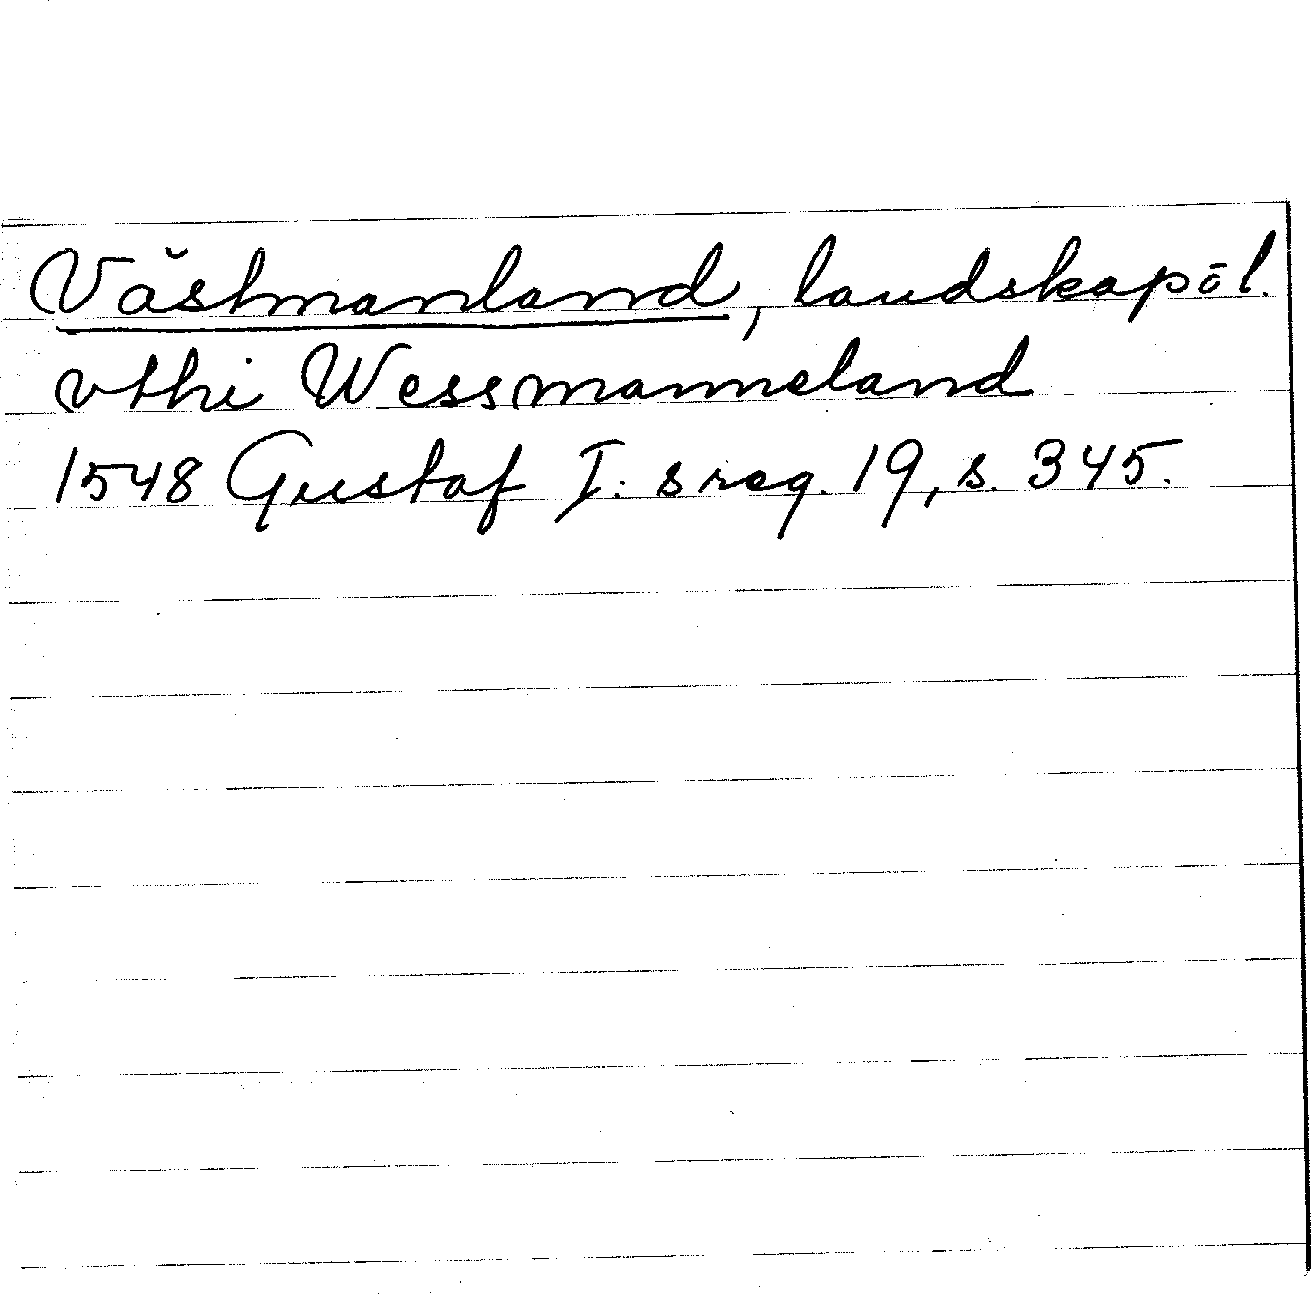 Västmanland, landskapöl.
vthi Wessmanneland
1548 Gustaf I: s reg. 19, s. 345.